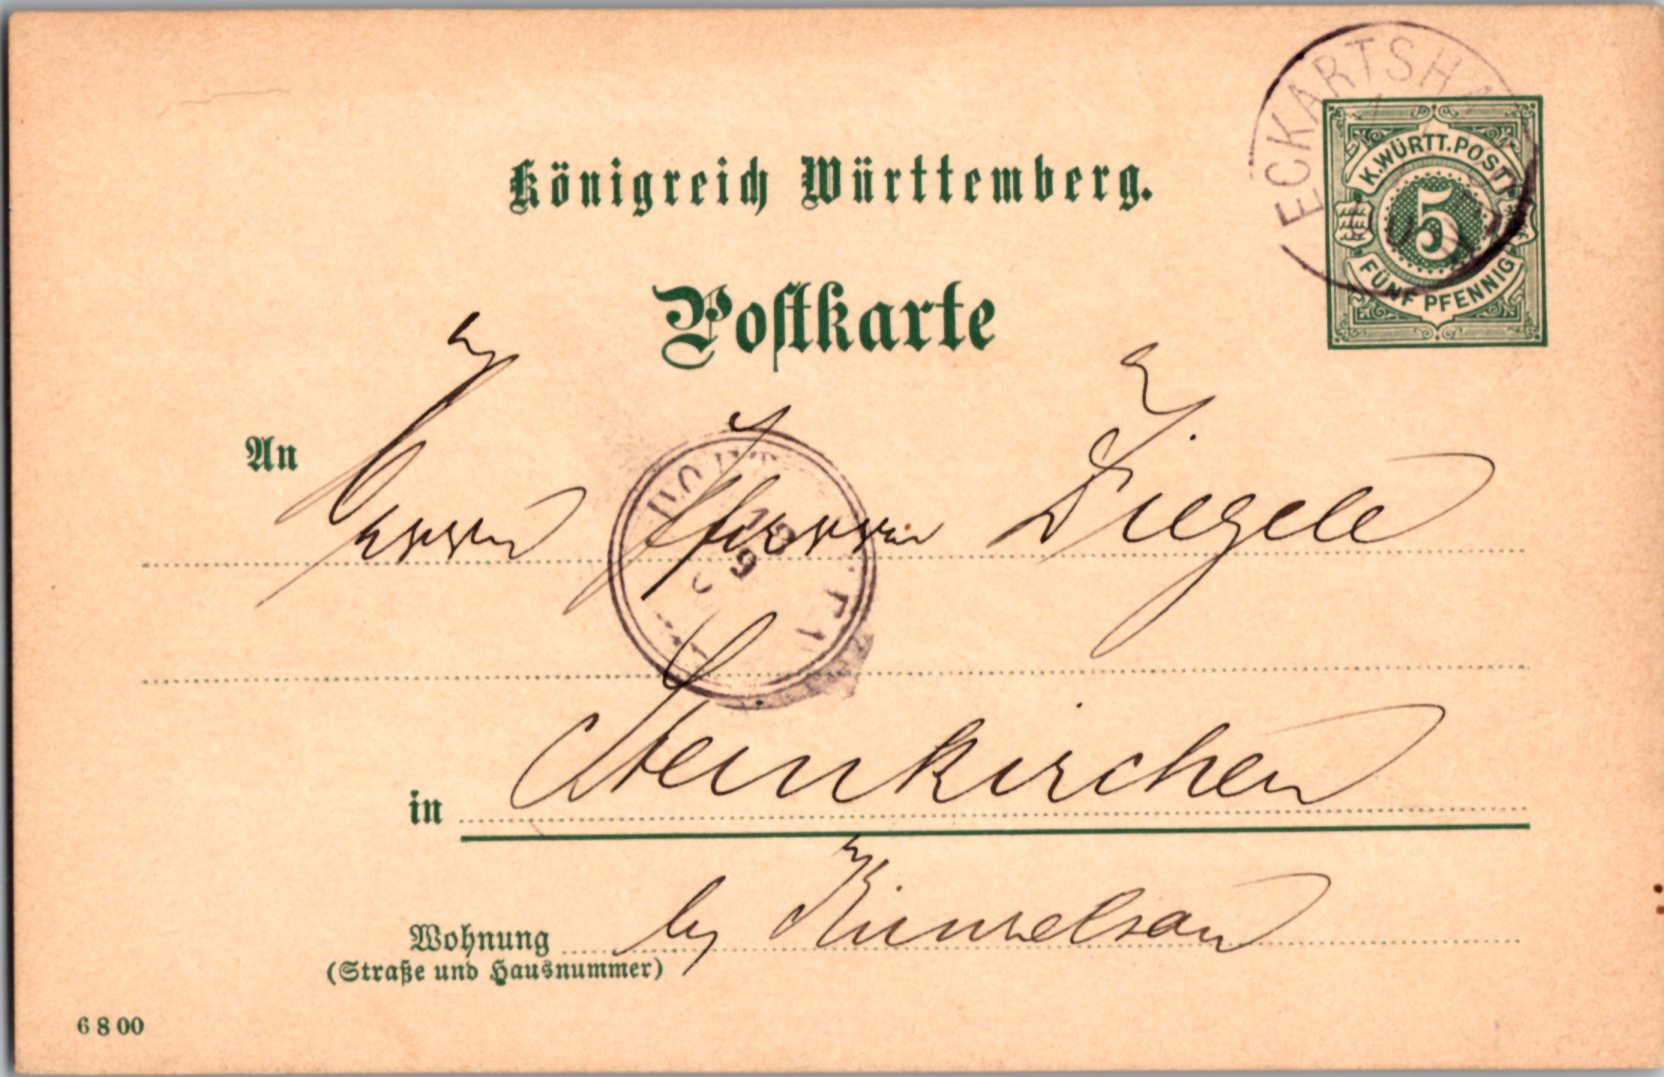 ECKARTSHA
K. WÜRTT. POST
5
FÜNF PFENNIG
Königreich Württemberg.
Postkarte
An
Herrn Pfarrer Ziegele
in Steinkirchen
Wohnung by Künzelsau
(Straße und Hausnummer)
6 8 00